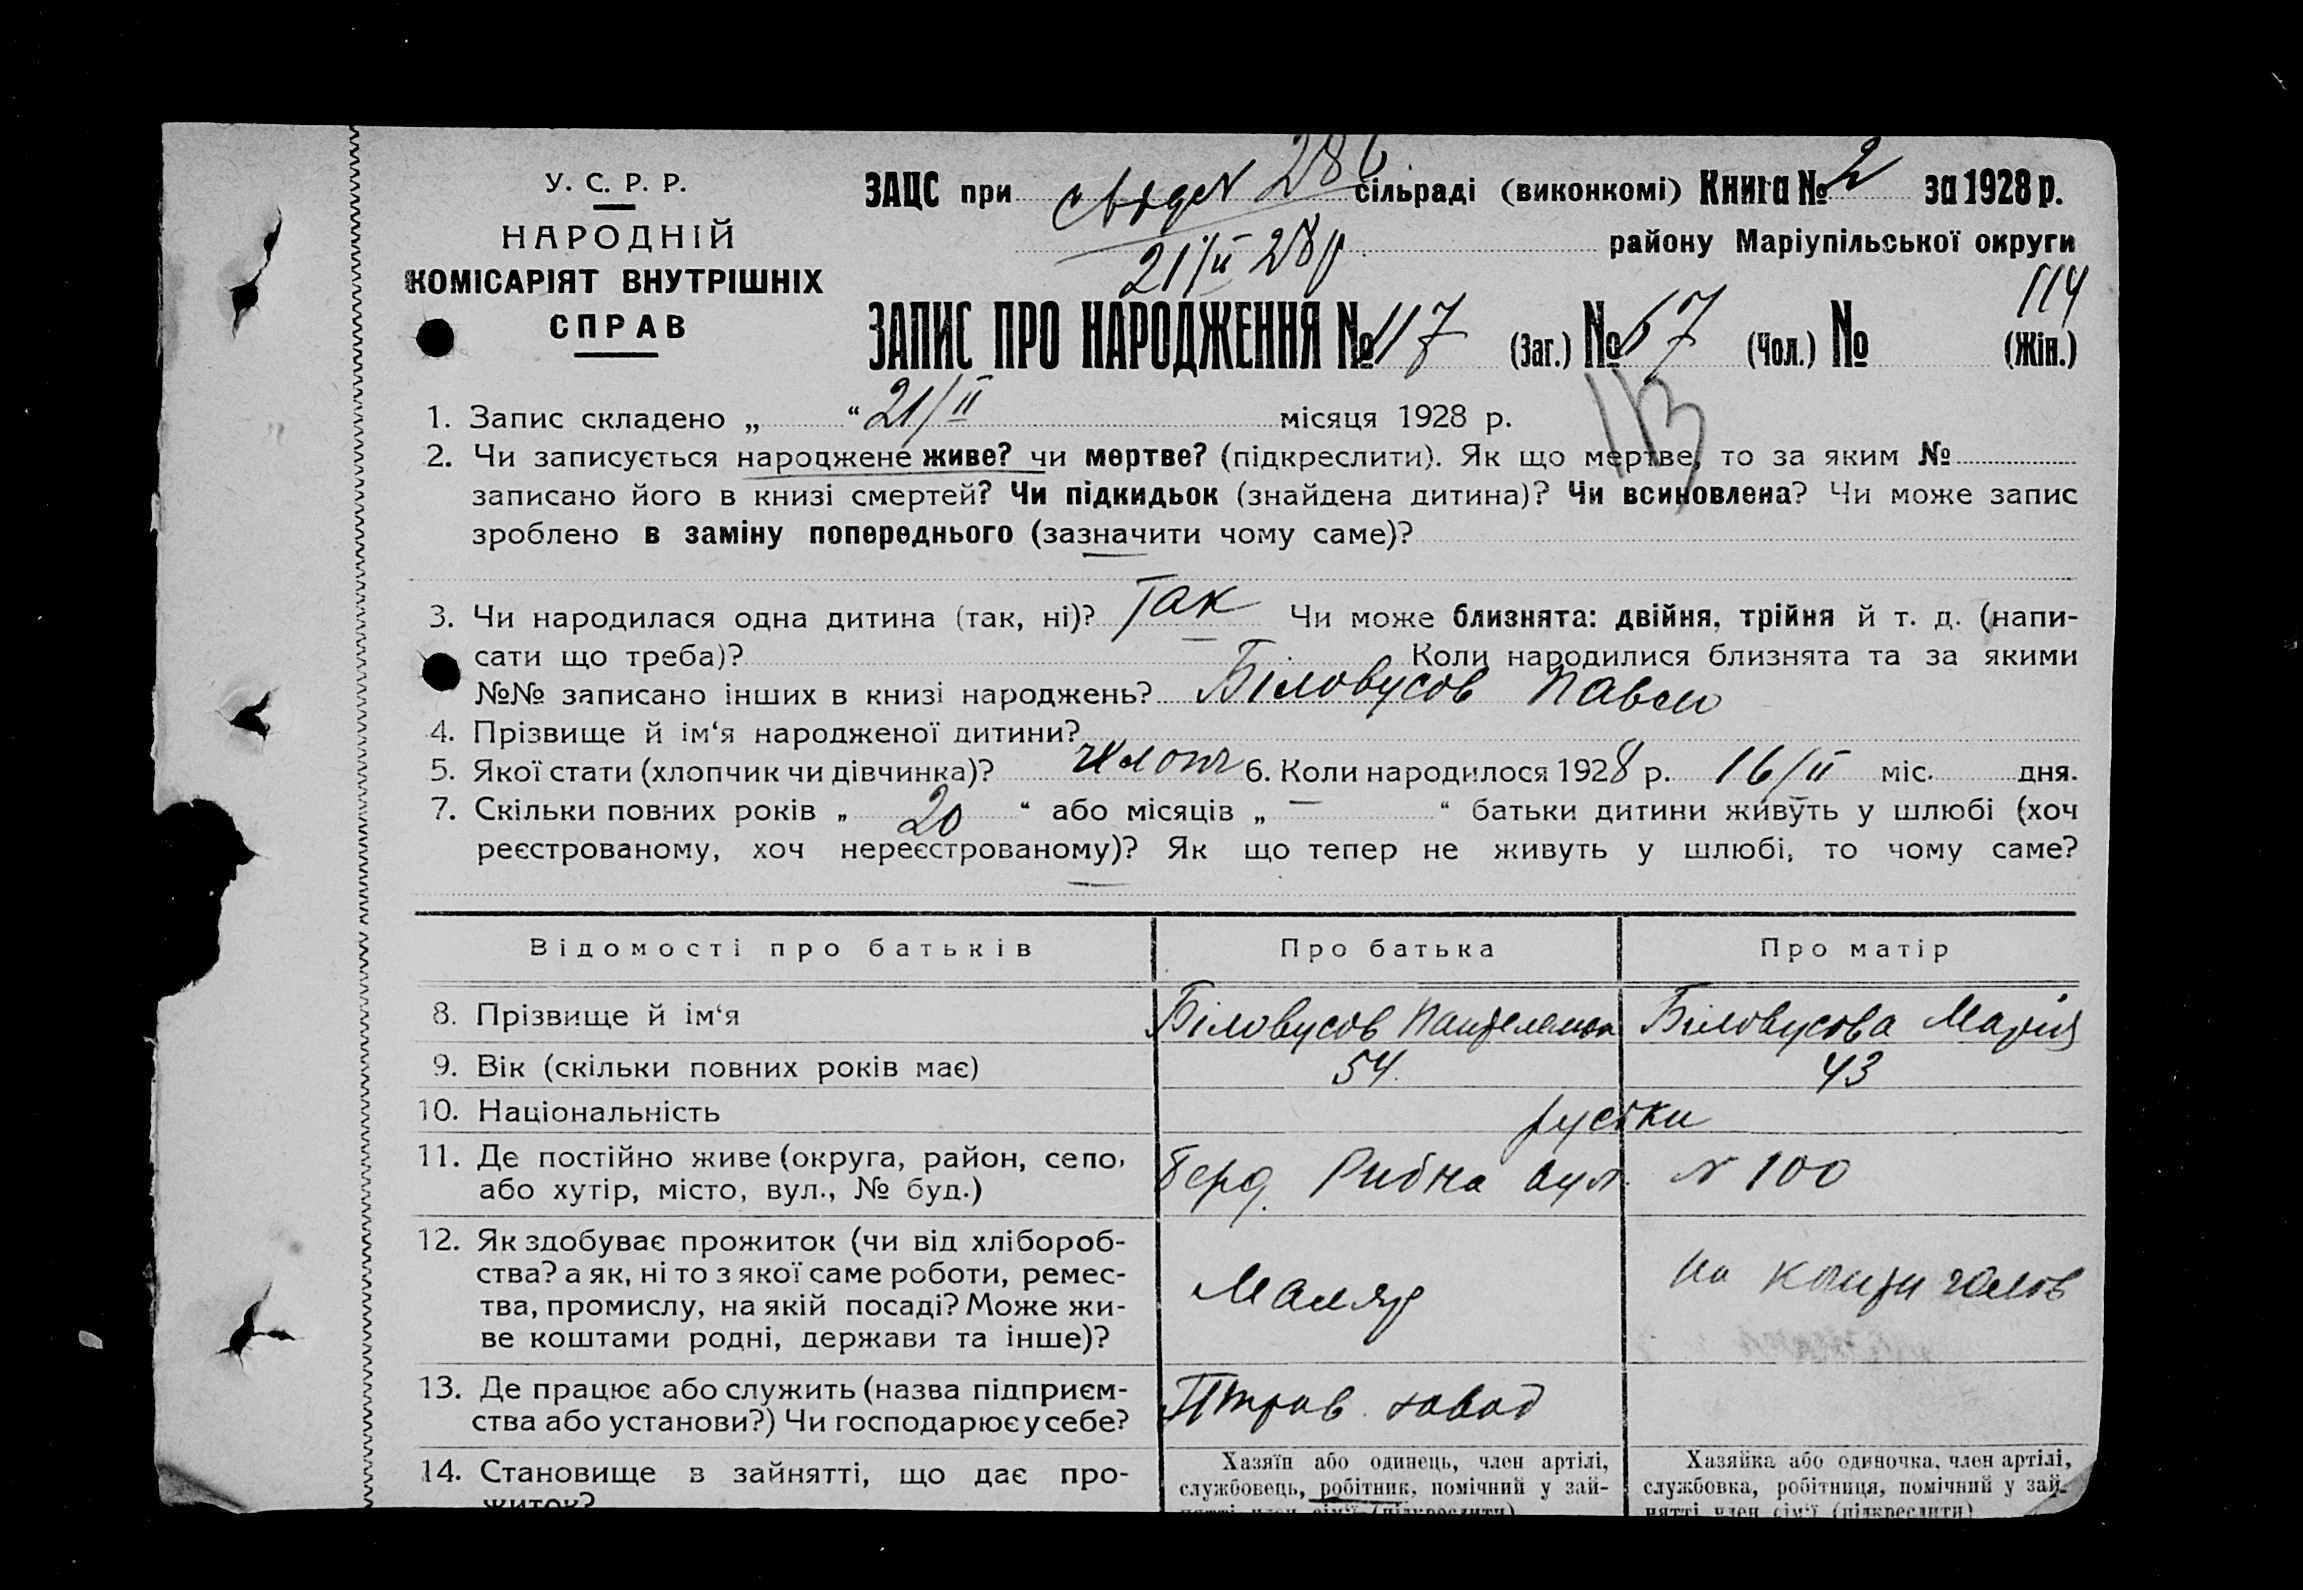 У. С. Р. Р.
НАРОДНІЙ
КОМІСАРІЯТ ВНУТРІШНІХ
СПРАВ
ЗАЦС при сільраді (виконкомі) Книга № 2 за 1928 р.
21/ІІ 28 р району Маріупільської округи
114
ЗАПИС ПРО НАРОДЖЕННЯ № 117 (Заг.) № 67 (Чол.) № (Жін.)
113
1. Запис складено „ “ 21/ІІ місяця 1928 р.
2. Чи записується народжене живе? чи мертве? (підкреслити). Як що мертве, то за яким №
записано його в книзі смертей? Чи підкидьок (знайдена дитина)? Чи всиновлена? Чи може запис
зроблено в заміну попереднього (зазначити чому саме)?
3. Чи народилася одна дитина (так, ні)? Так Чи може близнята: двійня, трійня й т. д. (напи-
сати що треба)? Коли народилися близнята та за якими
№№ записано інших в книзі народжень? Біловусов Павло
4. Прізвище й ім‘я народженої дитини?
5. Якої стати (хлопчик чи дівчинка)? хлопч 6. Коли народилося 1928 р. 16/ІІ міс. дня.
7. Скільки повних років „ 20 “ або місяців „ — “ батьки дитини живуть у шлюбі (хоч
реєстрованому, хоч нереєстрованому)? Як що тепер не живуть у шлюбі, то чому саме?
Відомості про батьків Про батька Про матір
8. Прізвище й ім‘я Біловусов Пантелемон Біловусова Марія
9. Вік (скільки повних років має) 54. 43
10. Національність руські
11. Де постійно живе (округа, район, село,
або хутір, місто, вул., № буд.) Берд. Рибна вул. № 100
12. Як здобуває прожиток (чи від хлібороб-
ства? а як, ні то з якої саме роботи, ремес-
тва, промислу, на якій посаді? Може жи-
ве коштами родні, держави та інше)? Маляр на кошти чолов
13. Де працює або служить (назва підприєм-
ства або установи?) Чи господарює у себе? завод
14. Становище в зайнятті, що дає про-
житок?
Хазяїн або одинець, член артілі,
службовець, робітник, помічний у зай-
нятті член сім‘ї (підкреслити)
Хазяйка або одиночка, член артілі,
службовка, робітниця, помічний у зай-
нятті член сім‘ї (підкреслити)